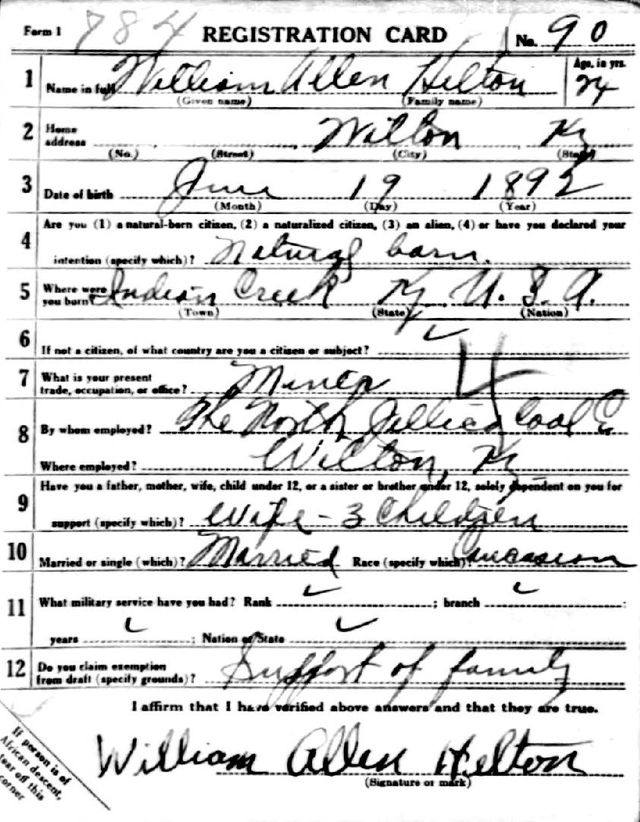 Form 1 784 REGISTRATION CARD No. 90
1 Name in full William Allen Hilton Age, in yrs. 24
(Given name) (Family name)
2 Home address Wilton Ky
(No.) (Street) (City) (State)
3 Date of birth June 19 1892
(Month) (Day) (Year)
4 Are you (1) a natural-born citizen, (2) a naturalized citizen, (3) an alien, (4) or have you declared your
intention (specify which)? Natural born.
5 Where were you born? Indian Creek Ky U. S. A.
(Town) (State) (Nation)
6 If not a citizen, of what country are you a citizen or subject?
7 What is your present trade, occupation, or office? Miner
8 By whom employed? The North Jellico Coal Co
Where employed? Wilton, Ky
9 Have you a father, mother, wife, child under 12, or a sister or brother under 12, solely dependent on you for
support (specify which)? Wife - 3 Children
10 Married or single (which)? Married Race (specify which)? Caucasion
11 What military service have you had? Rank ; branch ;
years ; Nation or State
12 Do you claim exemption from draft (specify grounds)? Support of family
I affirm that I have verified above answers and that they are true.
William Allen Hilton
(Signature or mark)
If person is of
African descent,
tear off this
corner